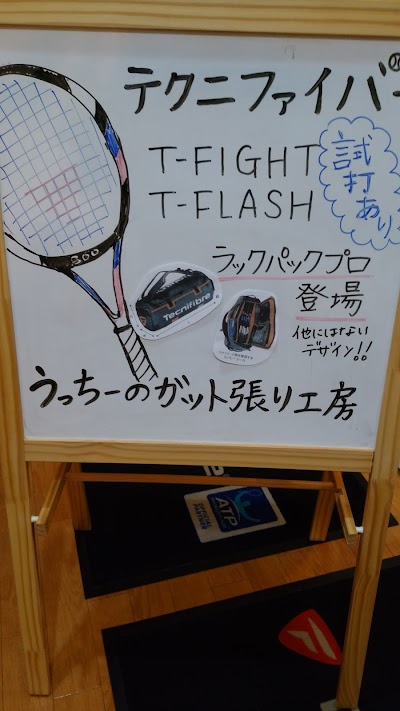 テクニファイバー
T-FIGHT
T-FLASH
試打あり
300
ラックパックプロ
登場
Tecnifibre
他にはない
デザイン!!
うっちーのガット張り工房
ATP
OFFICIAL
PARTNER